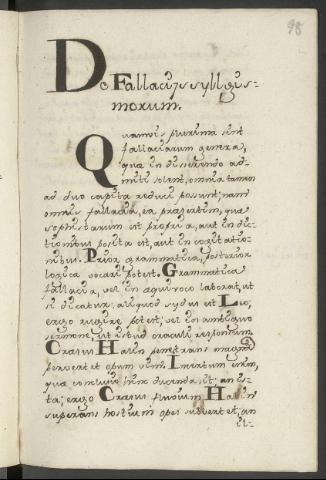 98
De Fallacijs syllogis-
morum.
Quamvis plurima sint
fallaciarum genera,
quæ in disserendo ad-
mitti solent, omnia tamen
ad duo capita reduci possunt; nam
omnis fallacia, ea præsertim, quæ
sophistarum est propria, aut in dic-
tionibus posita est, aut in cogitatio-
nibus. Prior grammatica, posterior
logica vocari potest. Grammatica
fallacia, vel in æquivoco laborat, ut
si dicatur: aliquod sydus est Leo,
ergo rugire potest; vel in ambiguo
sermone, ut istud oraculi responsum
Cræsus Halin penetrans magnam
pervertet opum vim. Incertum enim,
quæ conclusio hinc ducenda sit; an is-
ta; ergo Cræsus fluvium Halin
superans hostium opes subvertet; an